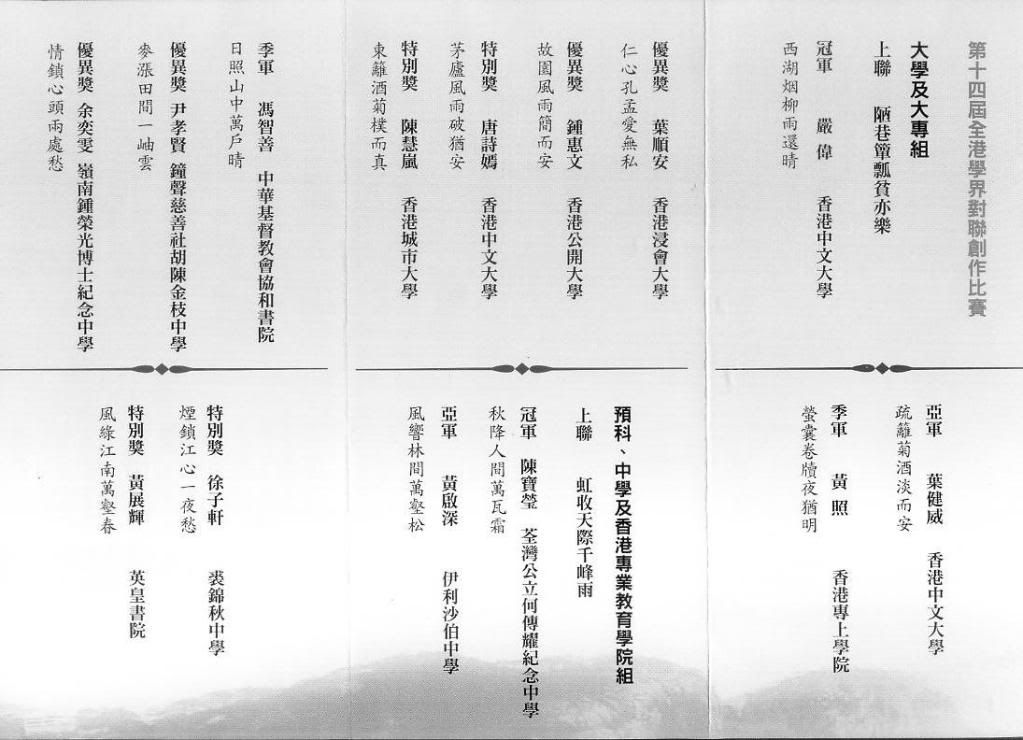 第十四屆全港學界對聯創作比賽
大學及大專組
上聯 陋巷簞瓢貧亦樂
冠軍 嚴偉 香港中文大學
西湖烟柳雨還晴
亞軍 葉健威 香港中文大學
疏籬菊酒淡而安
季軍 黃照 香港專上學院
螢囊卷牘夜猶明
優異獎 葉順安 香港浸會大學
仁心孔孟愛無私
優異獎 鍾惠文 香港公開大學
故園風雨簡而安
特別獎 唐詩嫣 香港中文大學
茅廬風雨破猶安
特別獎 陳慧嵐 香港城市大學
東籬酒菊樸而真
預科、中學及香港專業教育學院組
上聯 虹收天際千峰雨
冠軍 陳寶瑩 荃灣公立何傳耀紀念中學
秋降人間萬瓦霜
亞軍 黃啟深 伊利沙伯中學
風響林間萬壑松
季軍 馮智善 中華基督教會協和書院
日照山中萬戶晴
優異獎 尹孝賢 鐘聲慈善社胡陳金枝中學
麥漲田間一岫雲
優異獎 余奕雯 嶺南鍾榮光博士紀念中學
情鎖心頭兩處愁
特別獎 徐子軒 裘錦秋中學
煙鎖江心一夜愁
特別獎 黃展輝 英皇書院
風綠江南萬壑春